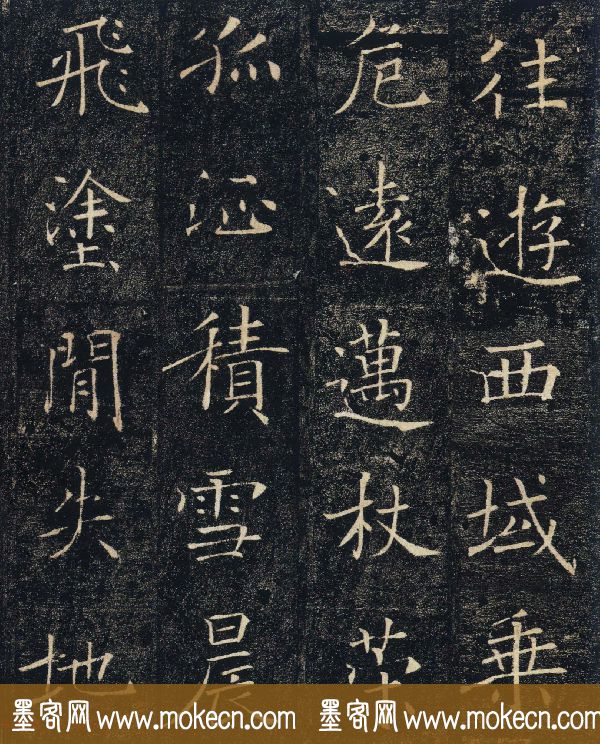 往遊西域乘
危遠邁杖策
孤征積雪晨
飛塗閒失地
墨客网 www.mokecn.com 墨客网 www.mokecn.com